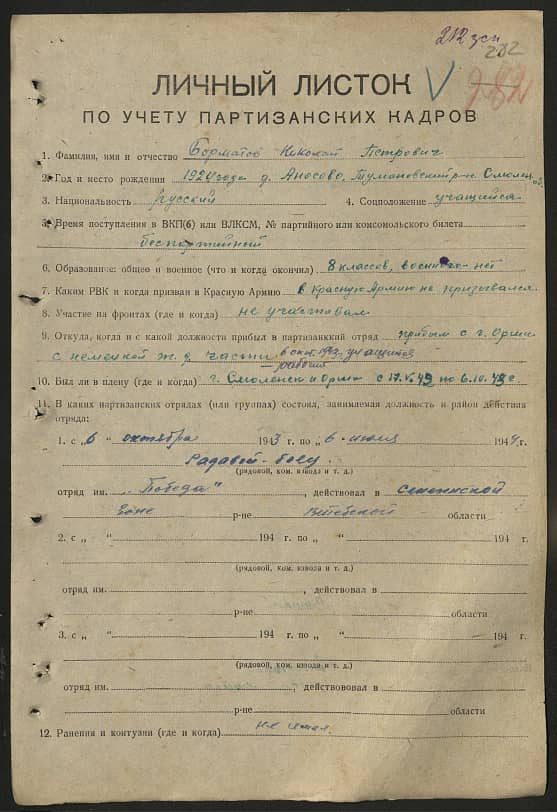 212 зсп
282
282
V
ЛИЧНЫЙ ЛИСТОК
ПО УЧЕТУ ПАРТИЗАНСКИХ КАДРОВ
1. Фамилия, имя и отчество Борматов Николай Петрович
2. Год и место рождения 1924 года д. Аносово, Тумановский р-н Смоленск. об.
3. Национальность русский 4. Соцположение учащийся
5. Время поступления в ВКП(б) или ВЛКСМ, № партийного или комсомольского билета
беспартийный
6. Образование: общее и военное (что и когда окончил) 8 классов, военного-нет
7. Каким РВК и когда призван в Красную Армию в Красную Армию не призывался.
8. Участие на фронтах (где и когда) не участвовал
9. Откуда, когда и с какой должности прибыл в партизанский отряд прибыл с г. Орши
с немецкой ж.д. части в окт. 1943, учащийся
рабочий
10. Был ли в плену (где и когда) г. Смоленск и Орша с 17.V.43 по 6.10.43 г.
11. В каких партизанских отрядах (или группах) состоял, занимаемая должность и район действия
отряда:
1. с „6 октября 1943 г. по „6 - июля 1944 г.
Радавой-боец
(рядовой, ком. взвода и т. д.)
отряд им. „Победа" , действовал в Сенненской
зоне р-не Витебской области
2. с „ " 194 г. по „ " 194 г.
(рядовой, ком. взвода и т. д.)
отряд им. , действовал в
р-не области
3. с „ " 194 г. по „ " 194 г.
(рядовой, ком. взвода и т. д.)
отряд им. , действововал в
р-не области
12. Ранения и контузии (где и когда) не имел.